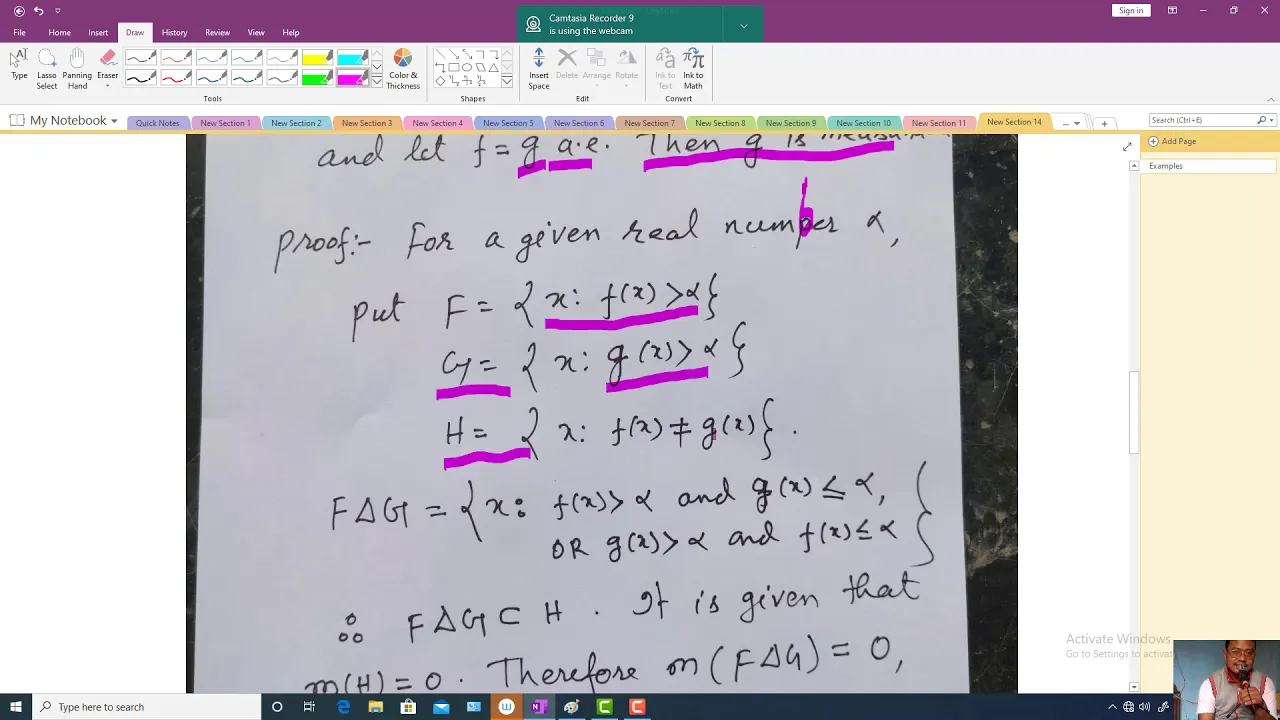 Camtasia Recorder 9
is using the webcam
Sign in
File Home Insert Draw History Review View Help
Type Lasso Select Panning Hand Eraser Color & Thickness Insert Space Delete Arrange Rotate Ink to Text Ink to Math
Tools Shapes Edit Convert
My Notebook Quick Notes New Section 1 New Section 2 New Section 3 New Section 4 New Section 5 New Section 6 New Section 7 New Section 8 New Section 9 New Section 10 New Section 11 New Section 14 Search (Ctrl+E)
Add Page
Examples
and let f = g a.e. Then g is
Proof:- For a given real number α,
put F = { x: f(x) > α }
G = { x: g(x) > α }
H = { x: f(x) ≠ g(x) } .
F Δ G = { x: f(x) > α and g(x) ≤ α,
OR g(x) > α and f(x) ≤ α }
∴ F Δ G ⊂ H . It is given that
m(H) = 0 . Therefore m(F Δ G) = 0,
Activate Windows
Go to Settings to activat
Type here to search